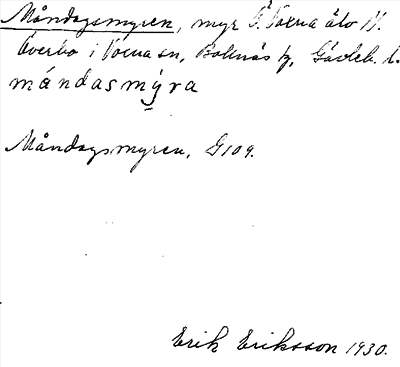 Måndagsmyren, myr Ö. Voxna älv N.
Överbo i Voxna sn, Bollnäs tg, Gävleb. l.
måndasmýra
Måndagsmyren, G109.
Erik Eriksson 1930.